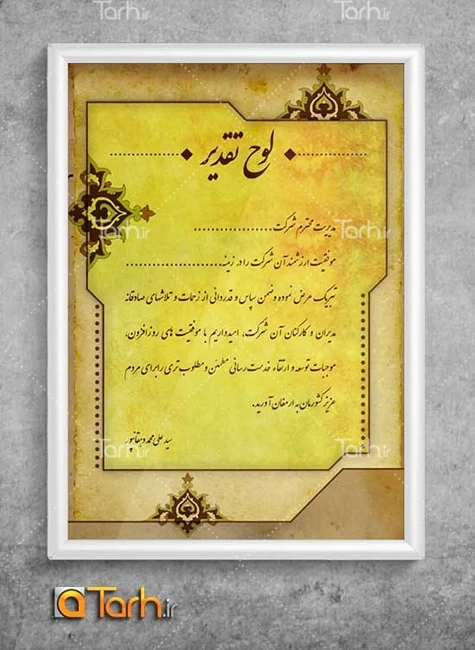 Tarh.ir
Tarh.ir
لوح تقدیر
مدیریت محترم شرکت....................
موفقیت ارزشمند آن شرکت را در زمینه........................
تبریک عرض نموده و ضمن سپاس و قدردانی از زحمات و تلاشهای صادقانه
مدیران و کارکنان آن شرکت، امیدواریم با موفقیت های روزافزون،
موجبات توسعه و ارتقاء خدمت رسانی مطمئن و مطلوب تری را برای مردم
عزیز کشورمان به ارمغان آورید.
سید علی محمد دهقانپور
Tarh.ir
Tarh.ir
Tarh.ir
Tarh.ir
Tarh.ir